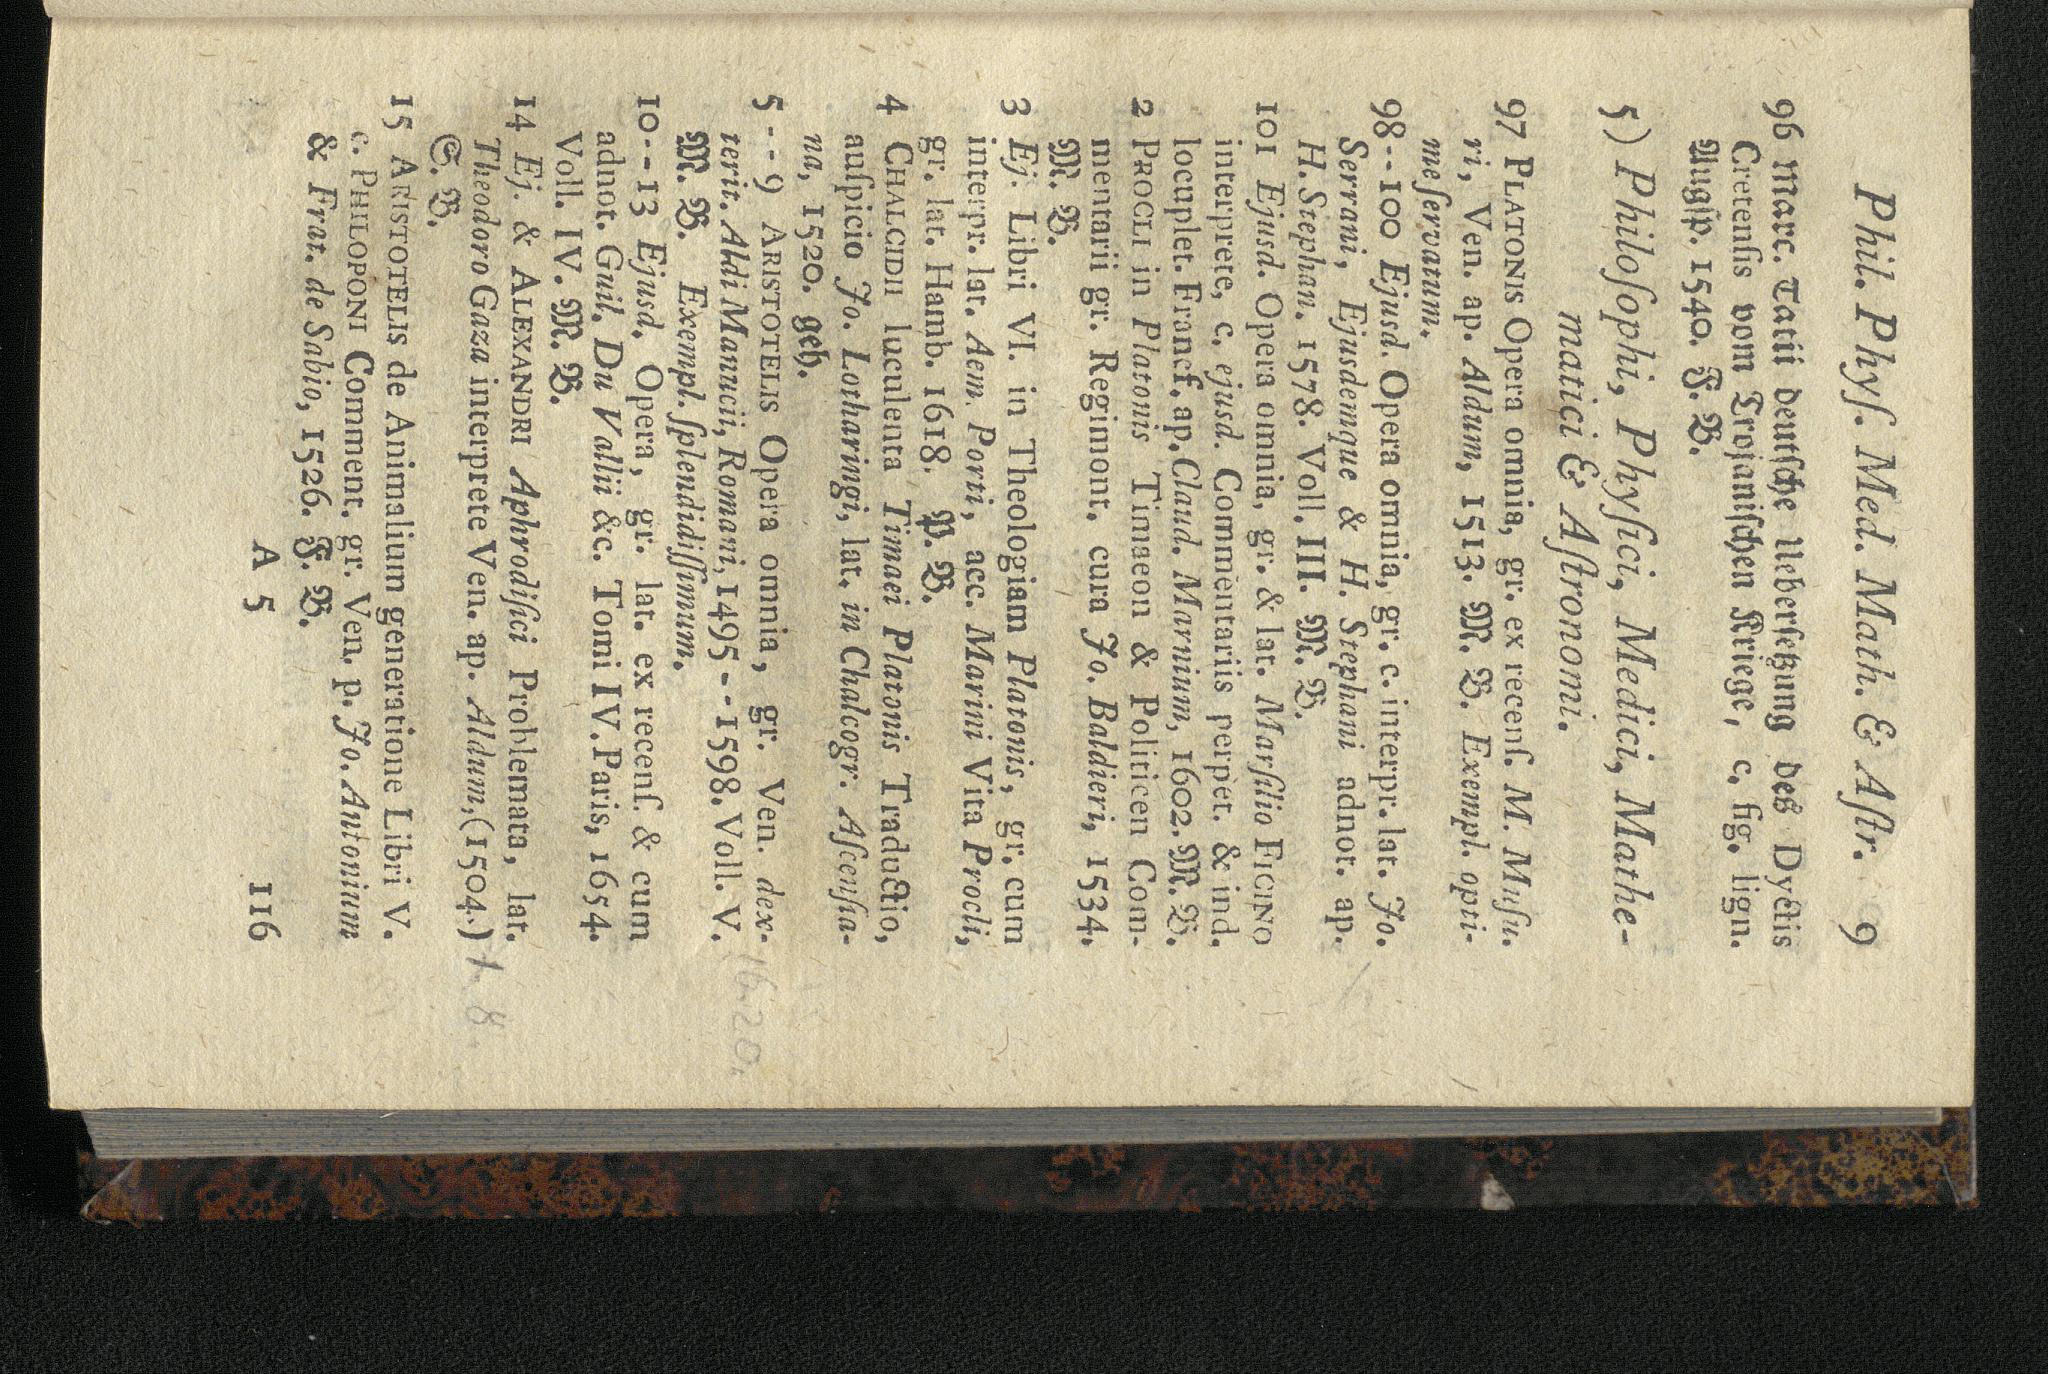 Phil. Phyſ. Med. Math. & Aſtr. 9
96 Marc. Tatii deutſche Ueberſetzung des Dyctis
Cretenſis vom Trojaniſchen Kriege, c. fig. lign.
Augſp. 1540. F. B.
5) Philoſophi, Phyſici, Medici, Mathe-
matici & Aſtronomi.
97 PLATONIS Opera omnia, gr. ex recenſ. M. Muſu.
ri, Ven. ap. Aldum, 1513. M. B. Exempl. opti-
me ſervatum.
98--100 Ejusd. Opera omnia, gr. c. interpr. lat. Jo.
Serrani, Ejusdemque & H. Stephani adnot. ap.
H. Stephan. 1578. Voll. III. M. B.
101 Ejusd. Opera omnia, gr. & lat. Marſilio FICINO
interprete, c. ejusd. Commentariis perpet. & ind.
locuplet. Francf. ap. Claud. Marnium, 1602. M. B.
2 PROCLI in Platonis Timaeon & Politicen Com-
mentarii gr. Regimont. cura Jo. Baldieri, 1534.
M. B.
3 Ej. Libri VI. in Theologiam Platonis, gr. cum
interpr. lat. Aem. Porti, acc. Marini Vita Procli,
gr. lat. Hamb. 1618. P. B.
4 CHALCIDII luculenta Timaei Platonis Traductio,
auſpicio Jo. Lotharingi, lat. in Chalcogr. Aſcenſia-
na, 1520. geh.
5--9 ARISTOTELIS Opera omnia, gr. Ven. dex-
terit. Aldi Manucii, Romani, 1495--1598. Voll. V.
M. B. Exempl. ſplendidiſſimum. 16.20.
10--13 Ejusd. Opera, gr. lat. ex recenſ. & cum
adnot. Guil. Du Vallii &c. Tomi IV. Paris, 1654.
Voll. IV. M. B.
14 Ej. & ALEXANDRI Aphrodiſici Problemata, lat.
Theodoro Gaza interprete Ven. ap. Aldum, (1504.) 8.
S. B.
15 ARISTOTELIS de Animalium generatione Libri V.
c. PHILOPONI Comment. gr. Ven. p. Jo. Antonium
& Frat. de Sabio, 1526. F. B.
A 5 116